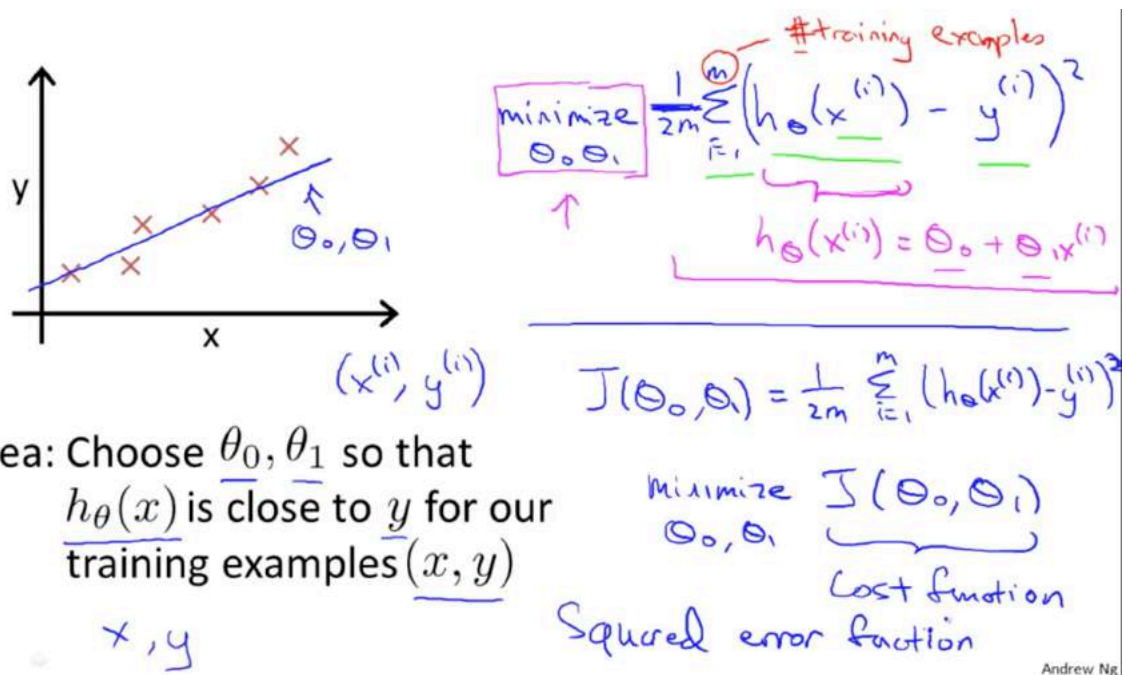 y
x
θ₀, θ₁
(x⁽ⁱ⁾, y⁽ⁱ⁾)
ea: Choose θ₀, θ₁ so that
h_θ(x) is close to y for our
training examples (x, y)
x, y
#training examples
minimize 1/2m Σ_{i=1}^{m} (h_θ(x⁽ⁱ⁾) - y⁽ⁱ⁾)²
θ₀ θ₁
h_θ(x⁽ⁱ⁾) = θ₀ + θ₁x⁽ⁱ⁾
J(θ₀, θ₁) = 1/2m Σ_{i=1}^{m} (h_θ(x⁽ⁱ⁾) - y⁽ⁱ⁾)²
minimize J(θ₀, θ₁)
θ₀, θ₁
Cost function
Squared error faction
Andrew Ng